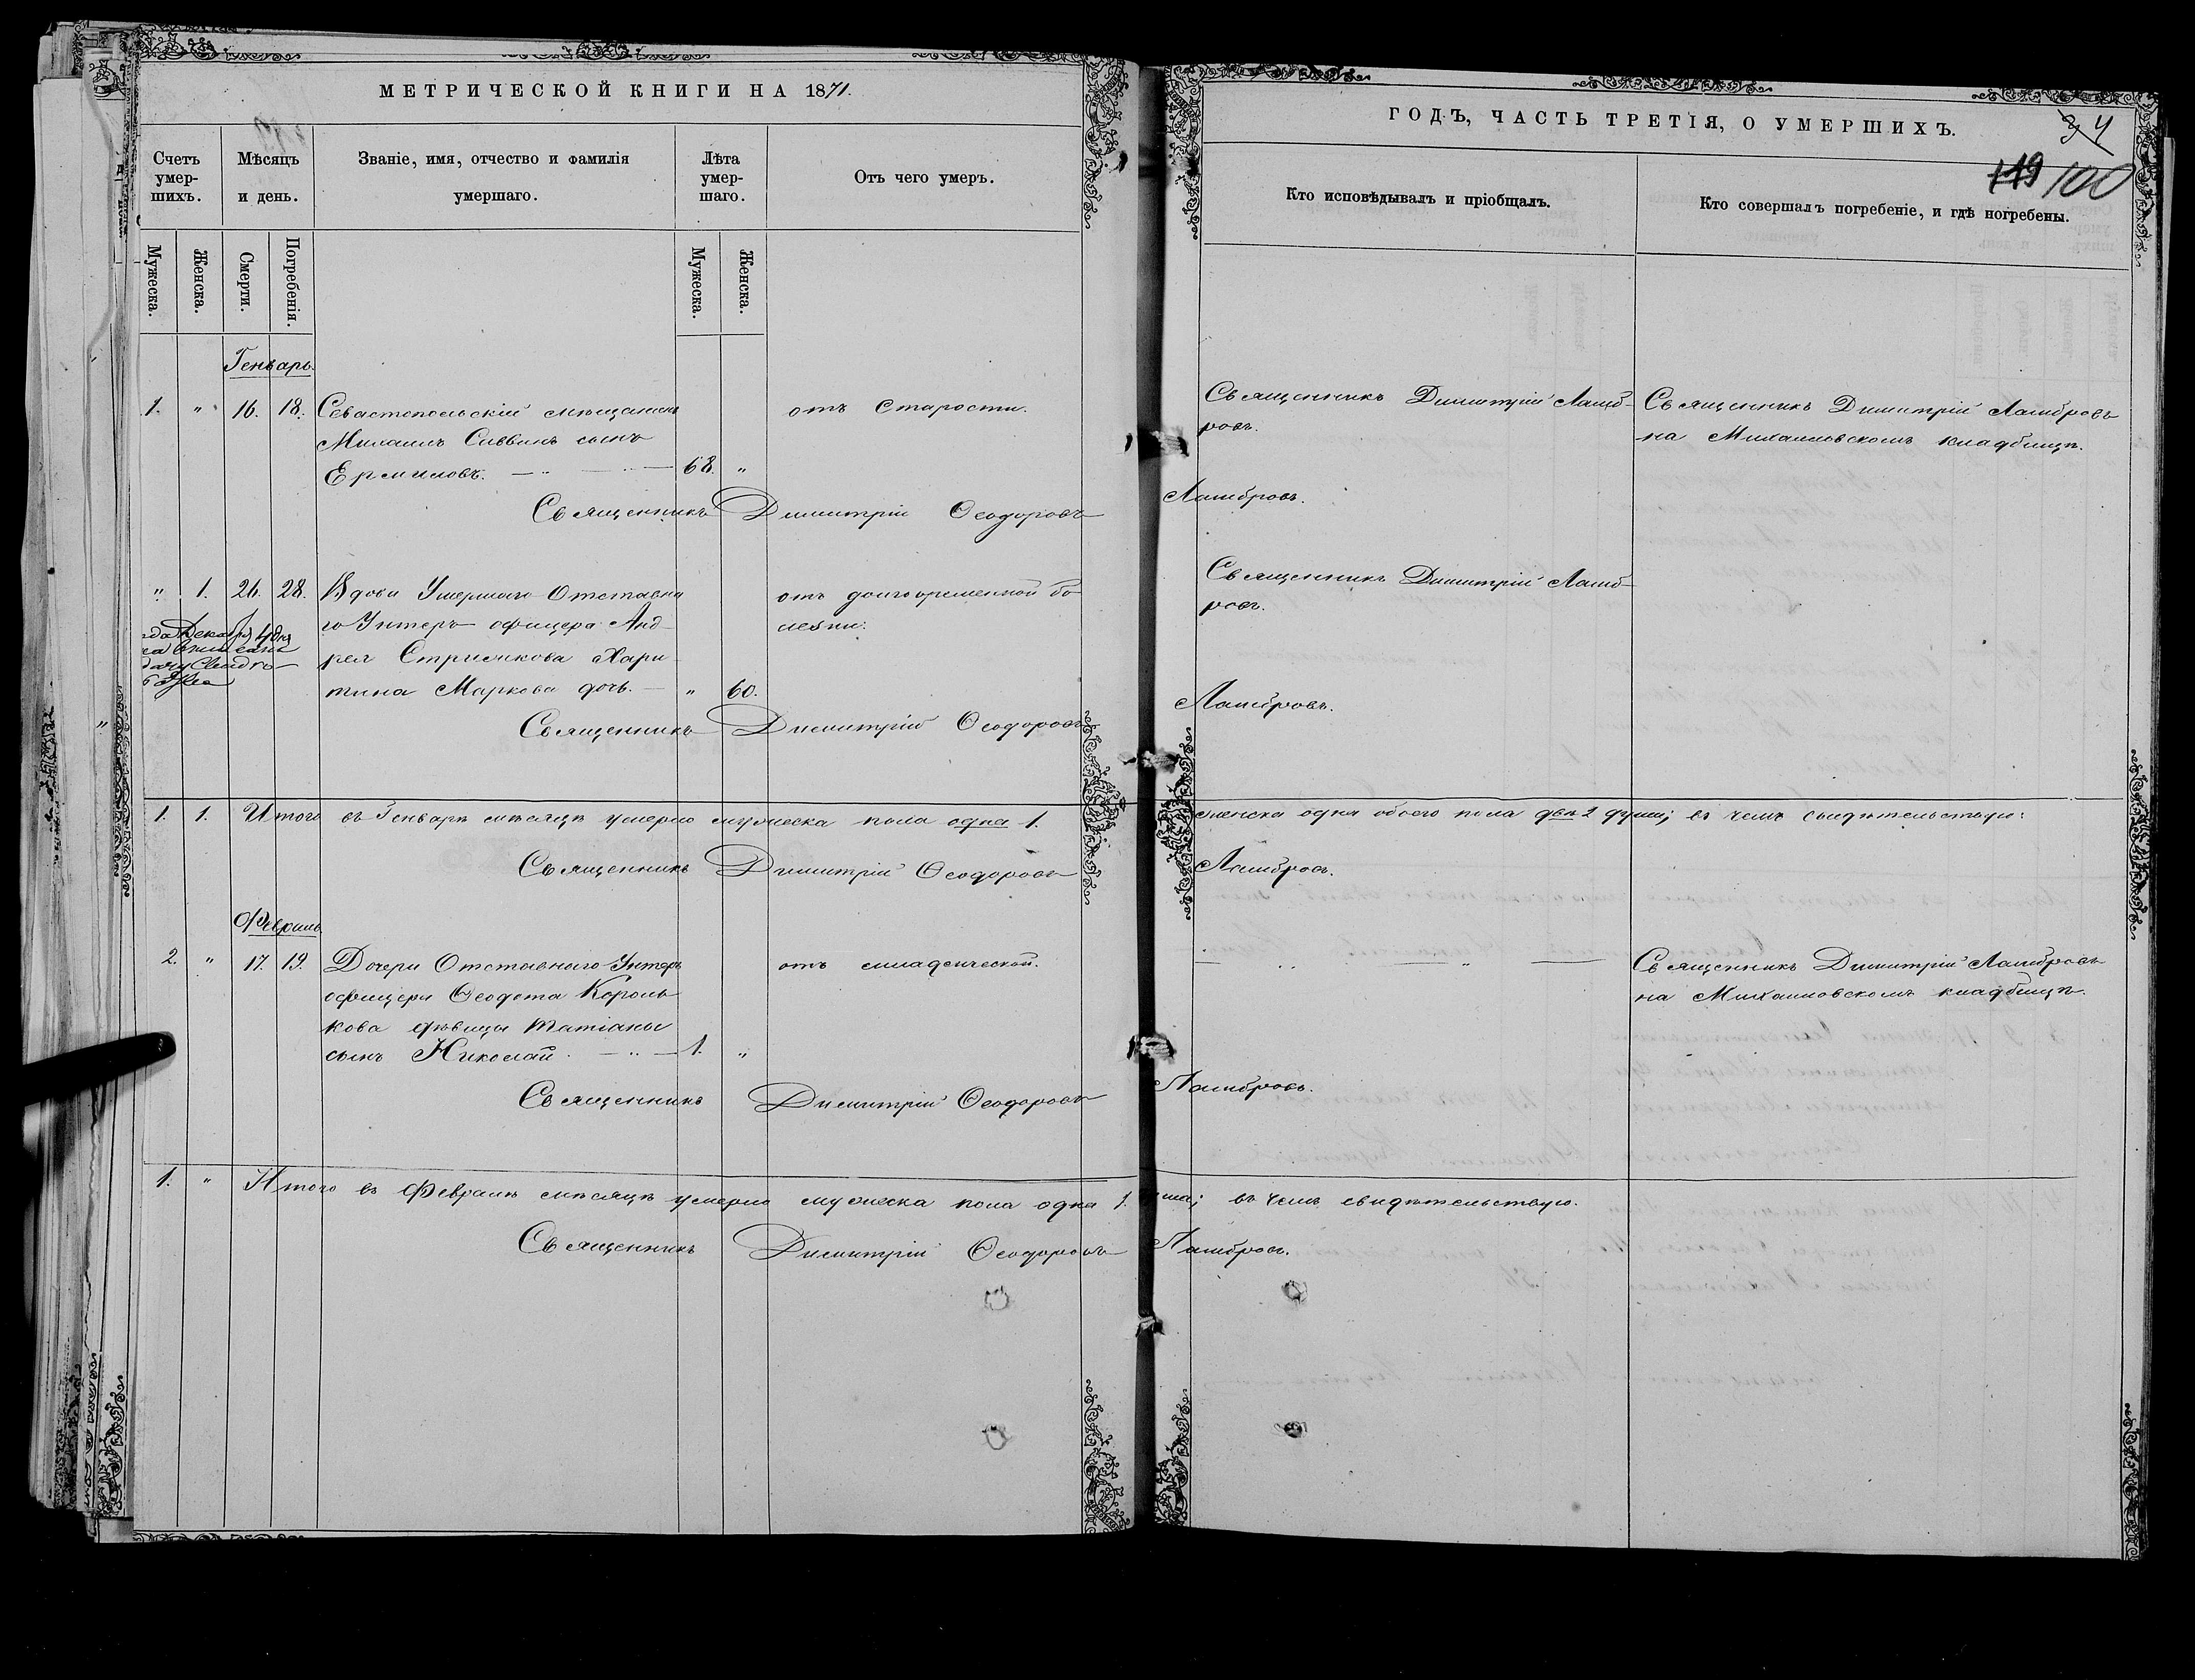 МЕТРИЧЕСКОЙ КНИГИ НА 1871.
Счетъ умер-шихъ.
Мѣсяцъ и день.
Званіе, имя, отчество и фамилія умершаго.
Лѣта умер-шаго.
Отъ чего умеръ.
Мужеска.
Женска.
Смерти.
Погребенія.
Мужеска.
Женска.
Генварь.
1. " 16. 18. Севастопольскій мѣщанинъ отъ Старости.
Михаилъ Саввинъ сынъ
Ермиловъ. 68. "
Священникъ Димитрій Ѳеодоровъ
" 1. 26. 28. Вдова Умершаго Отставна отъ долговременной бо
го Унтеръ офицера Анд лезни.
рея Стрилкова Хари
тина Маркова дочь. " 60.
Декабря 4 дня
Священникъ Димитрій Ѳеодоровъ
1. 1. Итого въ Генварѣ мѣсяцѣ умерло мужеска пола одна 1.
Священникъ Димитрій Ѳеодоровъ
Февраль
2. " 17. 19. Дочери Отставнаго Унтеръ отъ младенческой.
офицера Ѳеодота Король
кова дѣвицы Татіаны
сынъ Николай. 1. "
Священникъ Димитрій Ѳеодоровъ
1. " Итого въ Февралѣ мѣсяцѣ умерло мужеска пола одна 1.
Священникъ Димитрій Ѳеодоровъ
ГОДЪ, ЧАСТЬ ТРЕТІЯ, О УМЕРШИХЪ.
34
119 100
Кто исповѣдывалъ и пріобщалъ.
Кто совершалъ погребеніе, и гдѣ погребены.
Священникъ Димитрій Ламб- Священникъ Димитрій Ламбровъ
ровъ. на Михаиловскомъ кладбищѣ.
Ламбровъ.
Священникъ Димитрій Ламб-
ровъ.
Ламбровъ.
женска одна обоего пола двѣ 2 души; въ чемъ свидѣтельствую:
Ламбровъ.
" Священникъ Димитрій Ламбровъ
на Михаиловскомъ кладбищѣ.
Ламбровъ.
въ чемъ свидѣтельствую.
Ламбровъ.